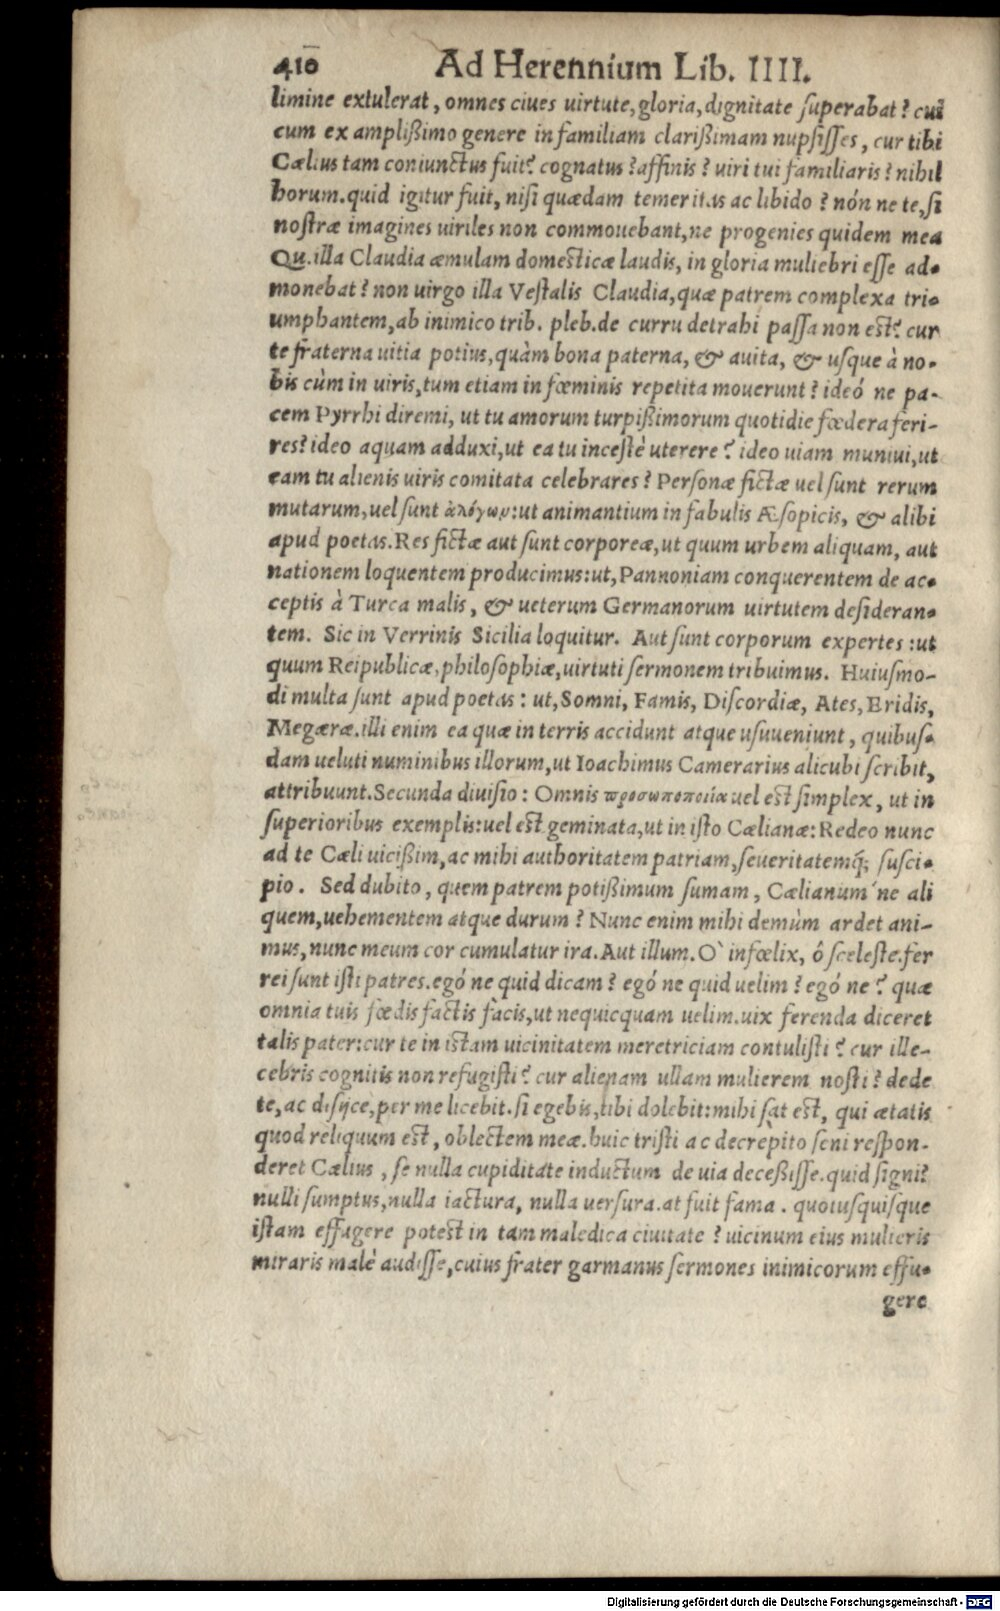 410 Ad Herennium Lib. IIII.
limine extulerat, omnes ciues uirtute, gloria, dignitate ſuperabat? cui
cum ex amplißimo genere in familiam clarißimam nupſiſſes, cur tibi
Cælius tam coniunctus fuit? cognatus? affinis? uiri tui familiaris? nihil
horum. quid igitur fuit, niſi quædam temeritas ac libido? nón ne te, ſi
noſtræ imagines uiriles non commouebant, ne progenies quidem mea
Qu. illa Claudia æmulam domesticæ laudis, in gloria muliebri eſſe ad-
monebat? non uirgo illa Veſtalis Claudia, quæ patrem complexa tri-
umphantem, ab inimico trib. pleb. de curru detrahi paſſa non est? cur
te fraterna uitia potius, quàm bona paterna, & auita, & uſque à no-
bis cùm in uiris, tum etiam in fœminis repetita mouerunt? ideó ne pa-
cem Pyrrhi diremi, ut tu amorum turpißimorum quotidie fœdera feri-
res? ideo aquam adduxi, ut ea tu inceſtè uterere? ideo uiam muniui, ut
eam tu alienis uiris comitata celebrares? Perſonæ fictæ uel ſunt rerum
mutarum, uel ſunt ἀλόγων: ut animantium in fabulis Æſopicis, & alibi
apud poetas. Res fictæ aut ſunt corporeæ, ut quum urbem aliquam, aut
nationem loquentem producimus: ut, Pannoniam conquerentem de ac-
ceptis à Turca malis, & ueterum Germanorum uirtutem deſideran-
tem. Sic in Verrinis Sicilia loquitur. Aut ſunt corporum expertes: ut
quum Reipublicæ, philoſophiæ, uirtuti ſermonem tribuimus. Huiuſmo-
di multa ſunt apud poetas: ut, Somni, Famis, Diſcordiæ, Ates, Eridis,
Megæræ. illi enim ea quæ in terris accidunt atque uſuueniunt, quibuſ-
dam ueluti numinibus illorum, ut Ioachimus Camerarius alicubi ſcribit,
attribuunt. Secunda diuiſio: Omnis προσωποποιΐα uel est ſimplex, ut in
ſuperioribus exemplis: uel est geminata, ut in iſto Cælianæ: Redeo nunc
ad te Cæli uicißim, ac mihi authoritatem patriam, ſeueritatemq́; ſuſci-
pio. Sed dubito, quem patrem potißimum ſumam, Cælianum´ne ali
quem, uehementem atque durum? Nunc enim mihi demùm ardet ani-
mus, nunc meum cor cumulatur ira. Aut illum. O` infœlix, ô ſceleſte. fer
rei ſunt iſti patres. egó ne quid dicam? egó ne quid uelim? egó ne? quæ
omnia tuis fœdis factis fàcis, ut nequicquam uelim. uix ferenda diceret
talis pater: cur te in istam uicinitatem meretriciam contuliſti? cur ille-
cebris cognitis non refugiſti? cur alienam ullam mulierem noſti? dede
te, ac diſijce, per me licebit. ſi egebis, tibi dolebit: mihi ſat est, qui ætatis
quod reliquum est, oblectem meæ. huic triſti ac decrepito ſeni reſpon-
deret Cælius, ſe nulla cupiditate inductum de uia deceßiſſe. quid ſigni?
nulli ſumptus, nulla iactura, nulla uerſura. at fuit fama. quotuſquiſque
iſtam effugere potest in tam maledica ciuitate? uicinum eius mulieris
miraris malè audiſſe, cuius frater garmanus ſermones inimicorum effu-
gere
Digitalisierung gefördert durch die Deutsche Forschungsgemeinschaft - DFG